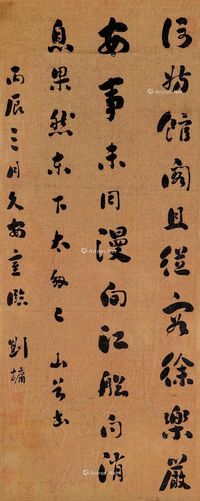 何妨館閣且從容徐樂嚴
安事未同漫向江船問消
息果然東下太匆〻 山谷書
丙辰三月久安室臨 劉墉